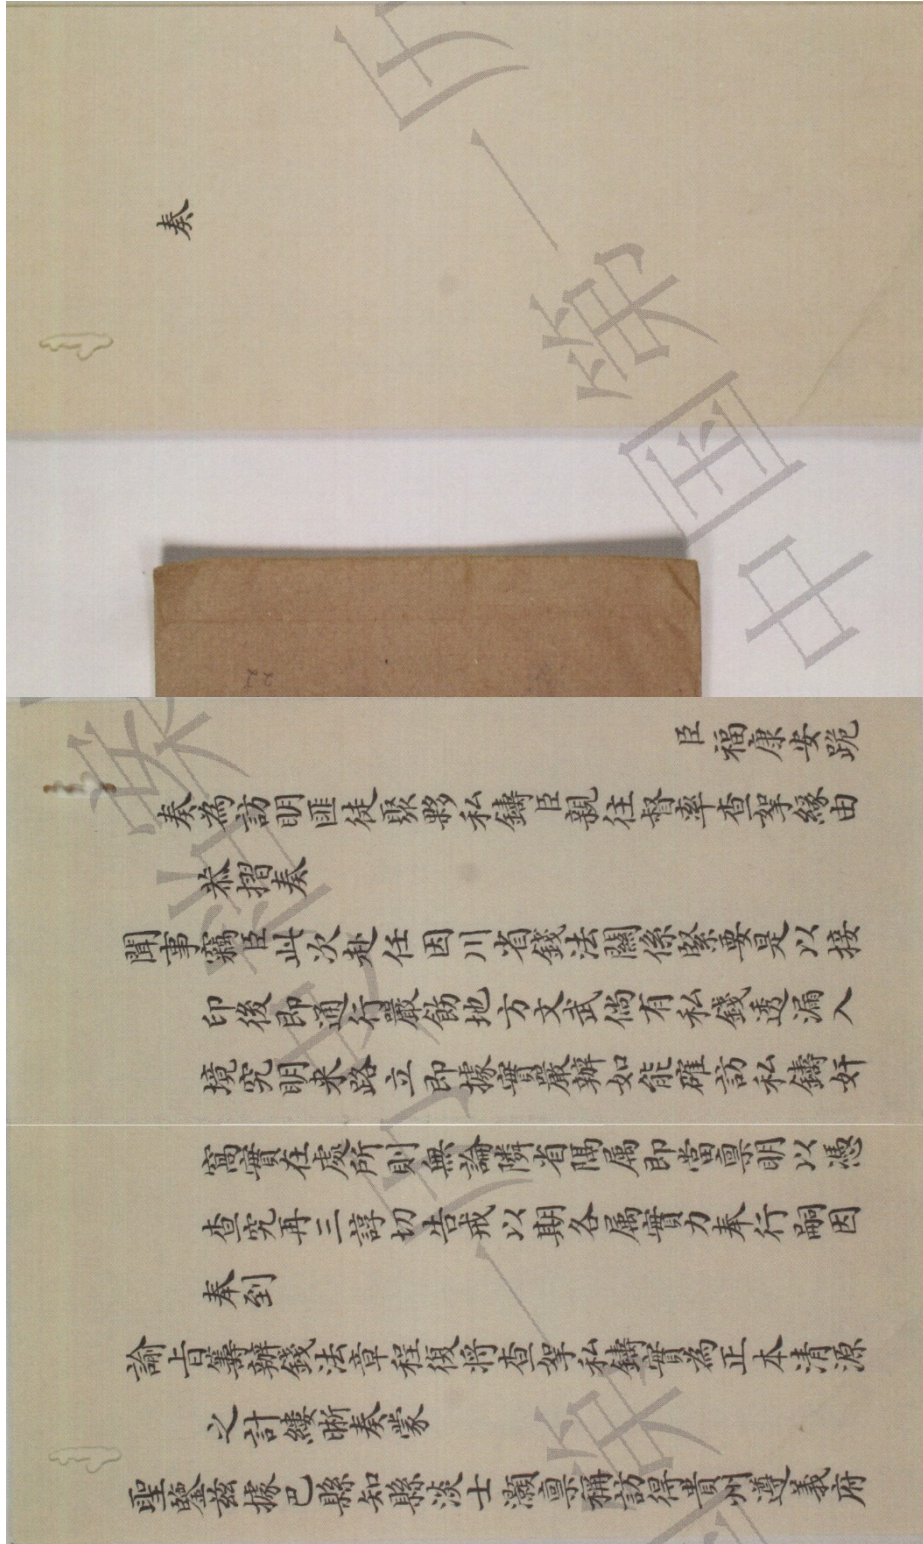 奏
臣福康安跪
奏為訪明匪徒聚夥私鑄臣親往督率查拏緣由
恭摺奏
聞事竊臣此次赴任因川省錢法關係緊要是以接
印後即通行嚴飭地方文武倘有私錢透漏入
境究明来路立即據實嚴辦如能確訪私鑄奸
窩實在處所則無論隣省隔属即當禀明以憑
查究再三諄切告戒以期各属實力奉行嗣因
奉到
諭旨籌辦錢法章程復将查拏私鑄實為正本清源
之計縷晰奏蒙
聖鑒兹據巴縣知縣淡士灝禀稱訪得貴州遵義府
中国第一历
22